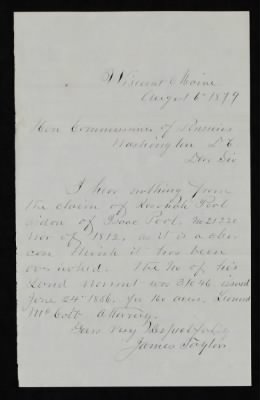 Wiscasset Maine
August 6th 1879
Hon Commissioner of Pensions
Washington D.C.
Dear Sir
I hear nothing from
the claim of Pool
widow of Isaac Pool. No 21220
War of 1812, as it is a clear
case think it has been
overlooked. The No of his
Land Warrant was 31046 issued
June 24th 1856. for 160 acres.
McCobb Attorney.
Yours Very Respectfully
James Taylor